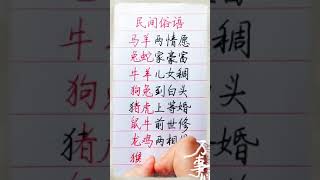 民间俗语
马羊两情愿
兔蛇家豪富
牛羊儿女稠
狗兔到白头
猪虎上等婚
鼠牛前世修
龙鸡两相
猴
万事